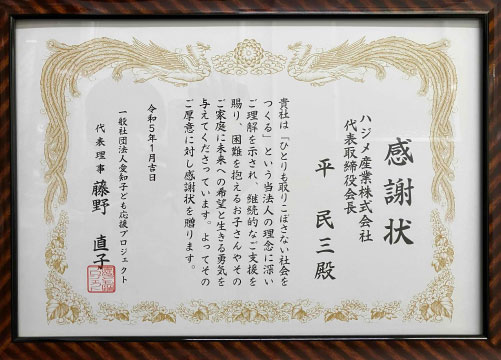 感謝状
ハジメ産業株式会社
代表取締役会長
平 民三殿
貴社は「ひとりも取りこぼさない社会を
つくる」という当法人の理念に深い
ご理解を示され、継続的なご支援を
賜り、困難を抱えるお子さんやその
ご家庭に未来への希望と生きる勇気を
与えてくださっています。よってその
ご厚意に対し感謝状を贈ります。
令和5年1月吉日
一般社団法人愛知子ども応援プロジェクト
代表理事 藤野 直子